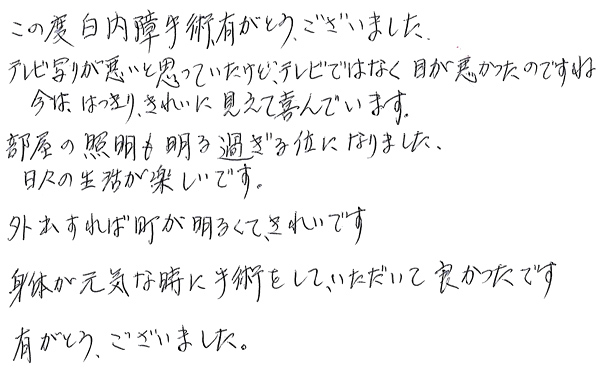 この度白内障手術、有がとう、ございました。
テレビ写りが悪いと思っていたけど、テレビではなく目が悪かったのですね
今は、はっきり、きれいに見えて喜んでいます。
部屋の照明も明る過ぎる位になりました、
日々の生活が楽しいです。
外出すれば町が明るくて、きれいです
身体が元気な時に手術をして、いただいて良かったです
有がとう、ございました。